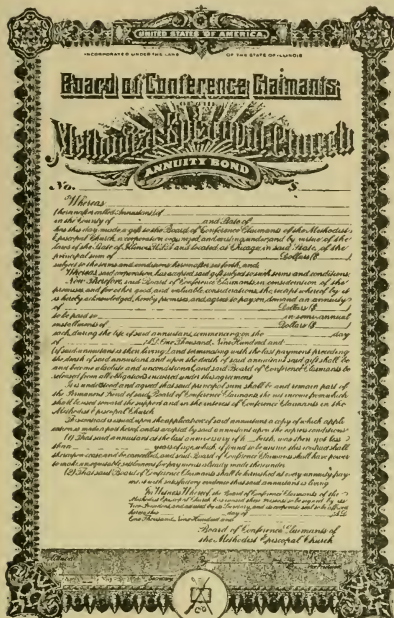 UNITED STATES OF AMERICA.
INCORPORATED UNDER THE LAWS OF THE STATE OF ILLINOIS
Board of Conference Claimants
OF THE
Methodist Episcopal Church
ANNUITY BOND
No. $
Whereas
(hereinafter called Annuitant) of
in the County of and State of
has this day made a gift to the Board of Conference Claimants of the Methodist
Episcopal Church, a corporation organized and existing under and by virtue of the
laws of the State of Illinois, U.S.A. and located at Chicago in said State, of the
principal sum of Dollars ($ )
subject to the terms and conditions hereinafter set forth, and,
Whereas, said corporation has accepted said gift subject to such terms and conditions:
Now Therefore, said Board of Conference Claimants in consideration of the
premises and for other good and valuable considerations, the receipt whereof by it
is hereby acknowledged, hereby promises and agrees to pay on demand an annuity
of Dollars ($ )
to be paid to in semi-annual
installments of Dollars ($ )
each, during the life of said annuitant, commencing on the day
of A.D. One Thousand, Nine Hundred and
(if said annuitant is then living) and terminating with the last payment preceding
the death of said annuitant, and upon the death of said annuitant said gift shall be
and become absolute and unconditional, and said Board of Conference Claimants be
released from all obligations incurred under this agreement.
It is understood and agreed that said principal sum shall be and remain part of
the Permanent Fund of said Board of Conference Claimants the net income from which
shall be used toward the support and in the interest of Conference Claimants in the
Methodist Episcopal Church
This bond is issued upon the application of said annuitant a copy of which
and accepted by said annuitant upon the express conditions
(1) That said annuitant at the last anniversary of h birth, was then not less
than years of age, which if found to be untrue this contract shall
thereupon cease and be cancelled, and said Board of Conference Claimants shall have power
to make an equitable settlement for payments actually made thereunder.
(2) That said Board of Conference Claimants shall be furnished at any annuity pay-
ment, with satisfactory evidence that said annuitant is living
In Witness Whereof, the Board of Conference Claimants of the
Methodist Episcopal Church has caused these presents to be signed by its
Vice President, and attested by its Secretary, and its corporate seal to be affixed
hereto this day of A.D.
One Thousand, Nine Hundred and
Board of Conference Claimants of
the Methodist Episcopal Church
Secretary